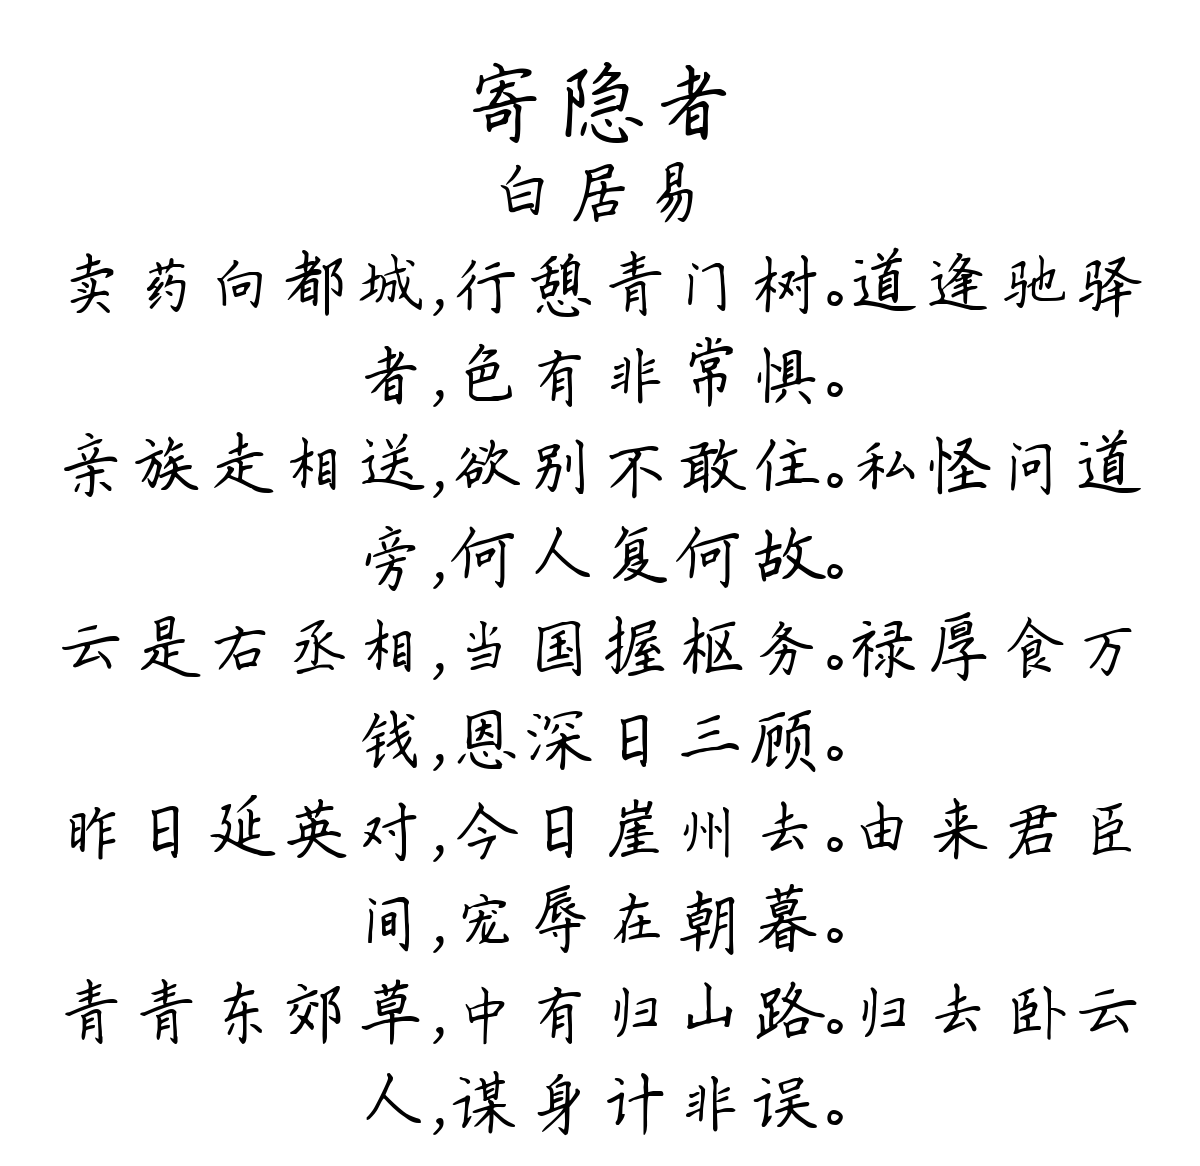 寄隐者
白居易
卖药向都城,行憩青门树。道逢驰驿
者,色有非常惧。
亲族走相送,欲别不敢住。私怪问道
旁,何人复何故。
云是右丞相,当国握枢务。禄厚食万
钱,恩深日三顾。
昨日延英对,今日崖州去。由来君臣
间,宠辱在朝暮。
青青东郊草,中有归山路。归去卧云
人,谋身计非误。